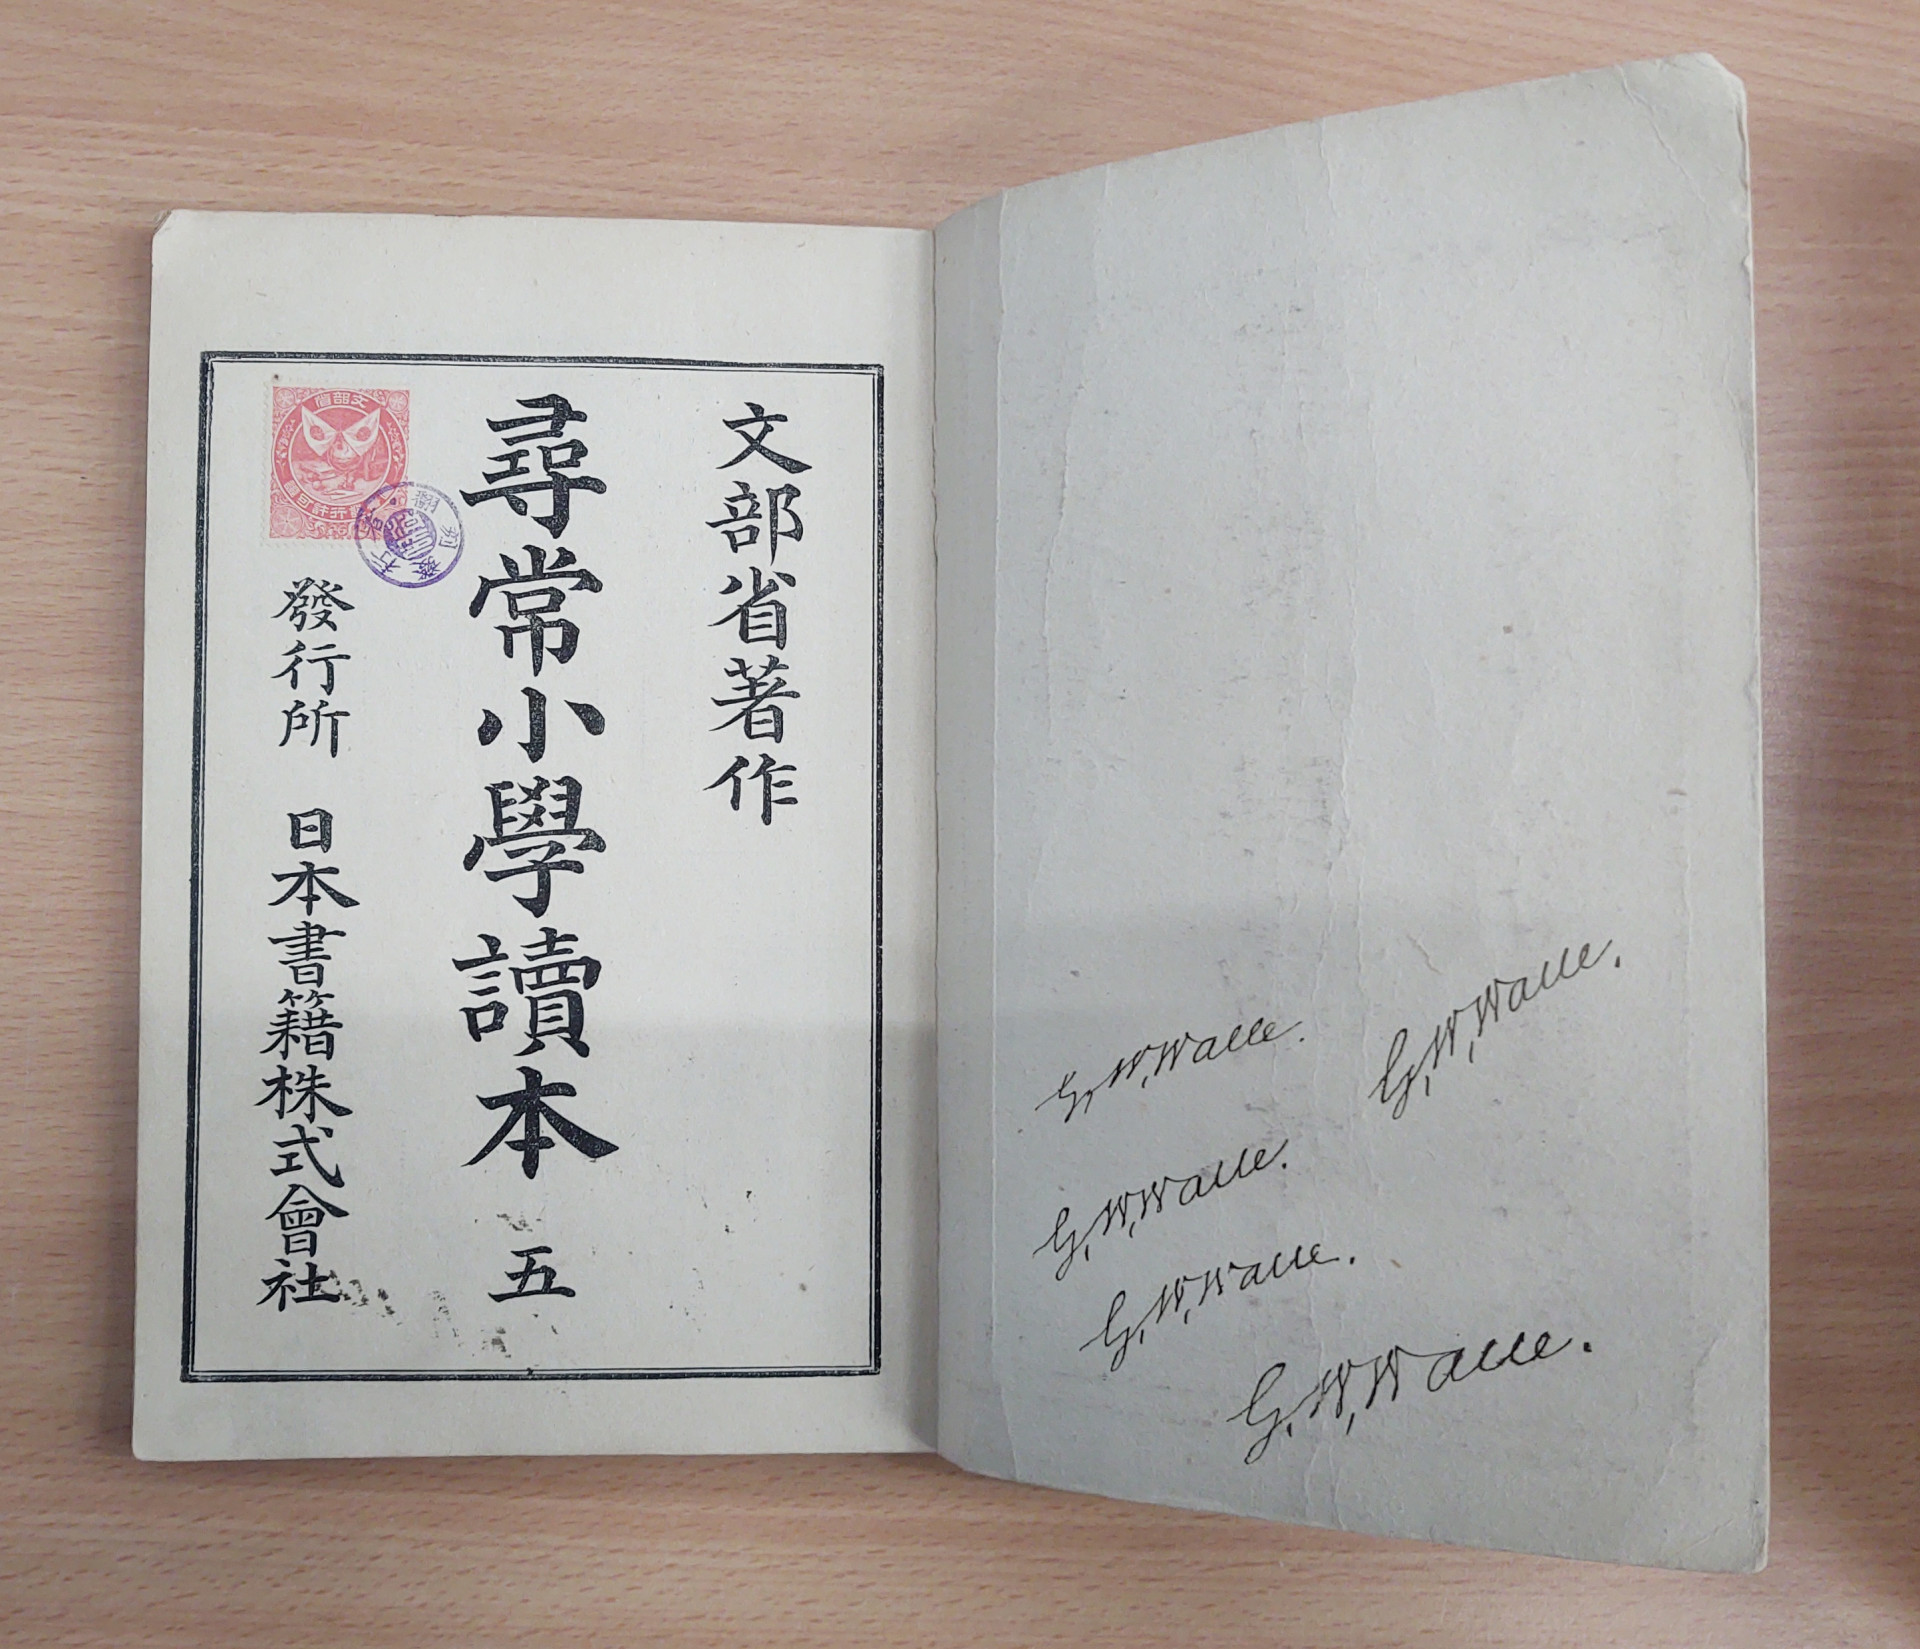 文部省著作
尋常小學讀本 五
發行所 日本書籍株式會社
G. W. Walle.
G. W. Walle.
G. W. Walle.
G. W. Walle.
G. W. Walle.